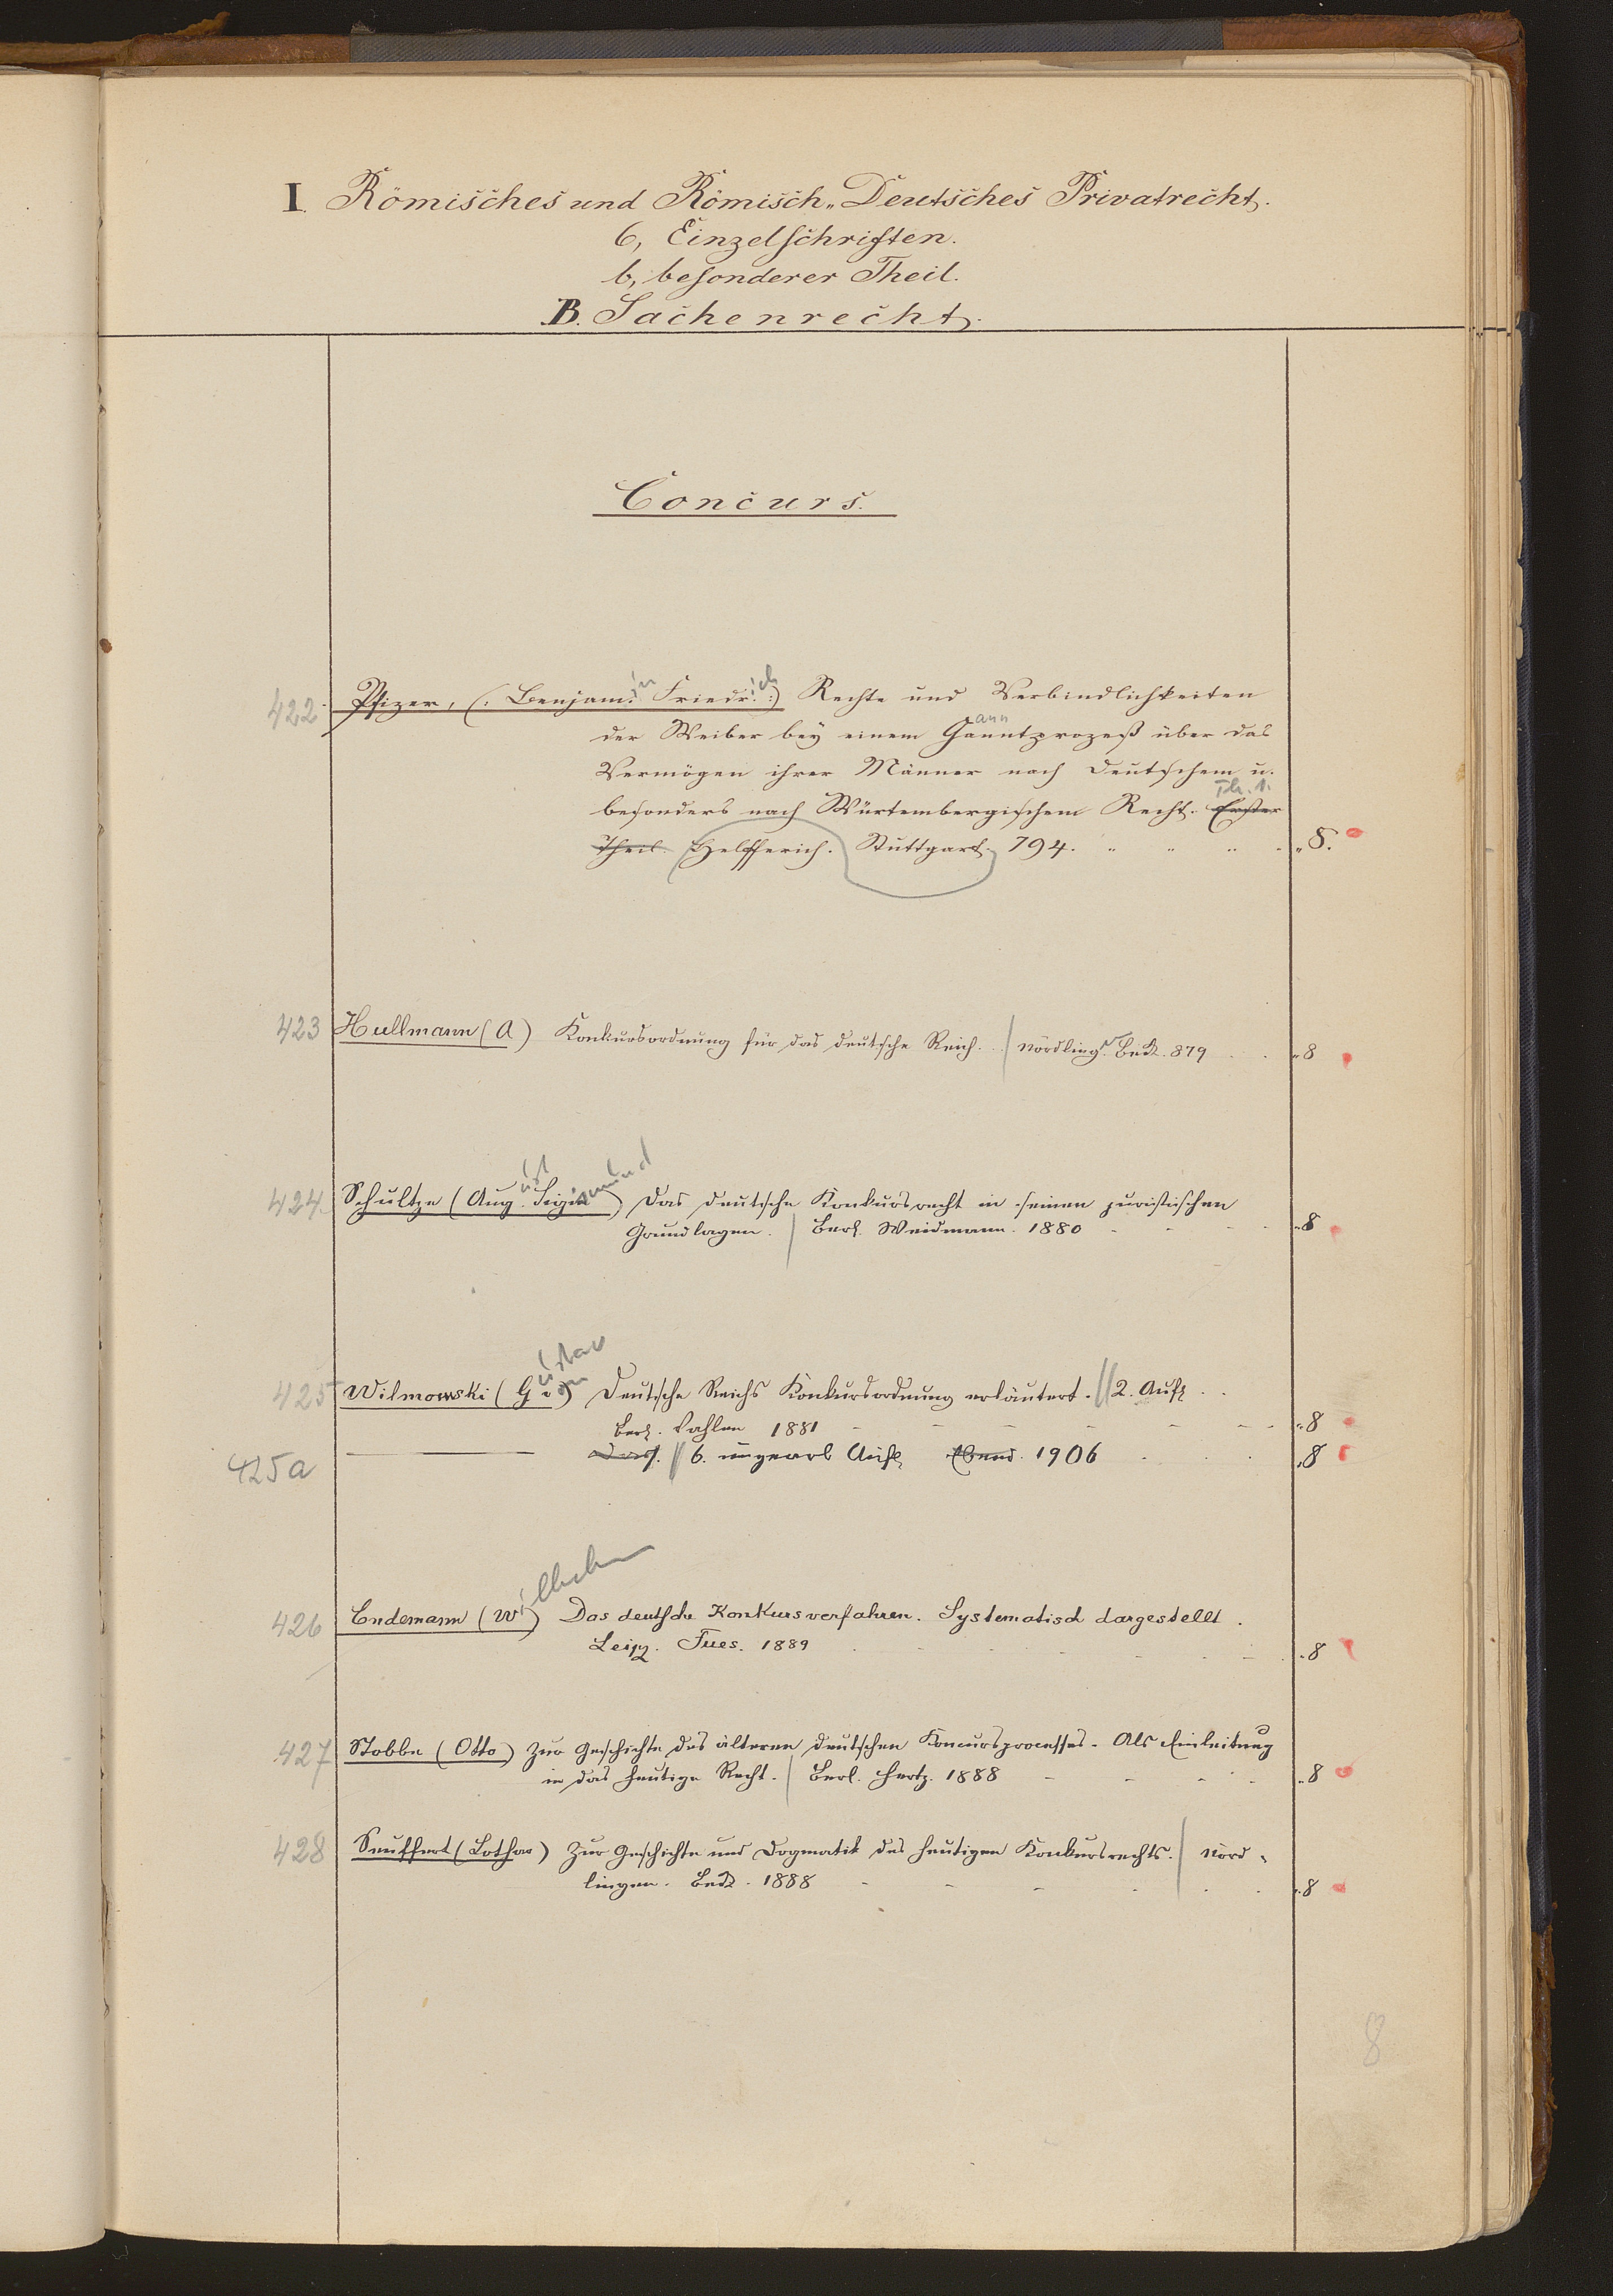 I. Römisches und Römisch-Deutsches Privatrecht.
6, Einzelschriften.
b, besonderer Theil.
B. Sachenrecht.
Concurs.
422. Pfizer, (: Benjam:in Friedr:ich :) Rechte und Verbindlichkeiten
der Weiber bey einem Ganntprozeß über das
Vermögen ihrer Männer nach deutschem u.
besonders nach Würtembergischem Recht. Erster Th. 1.
Theil. Helfferich. Stuttgart. 794. „ 8.
423 Hullmann (A) Konkursordnung für das deutsche Reich. Nördling. Beck. 879 „ 8
424. Schultze (August Sigismund) Das deutsche Konkursrecht in seinen juristischen
Grundlagen. Berl. Weidmann. 1880 „ 8
425 Wilmowski (Gustav von) Deutsche Reichs Konkursordnung erläutert. 2. Aufl.
Berl. Vahlen 1881 „ 8
425a Dass. 6. umgearb Aufl. Ebend. 1906 „ 8
426 Endemann (Wilhelm) Das deutsche Konkursverfahren. Systematisch dargestellt.
Leipz. Fues. 1889 „ 8
427 Stobbe (Otto) Zur Geschichte des älteren deutschen Koncursprocesses. Als Einleitung
in das heutige Recht. Berl. Hertz. 1888 „ 8
428 Seuffert (Lothar) Zur Geschichte und Dogmatik des heutigen Konkursrechts. Nörd-
lingen. Beck. 1888 „ 8
8